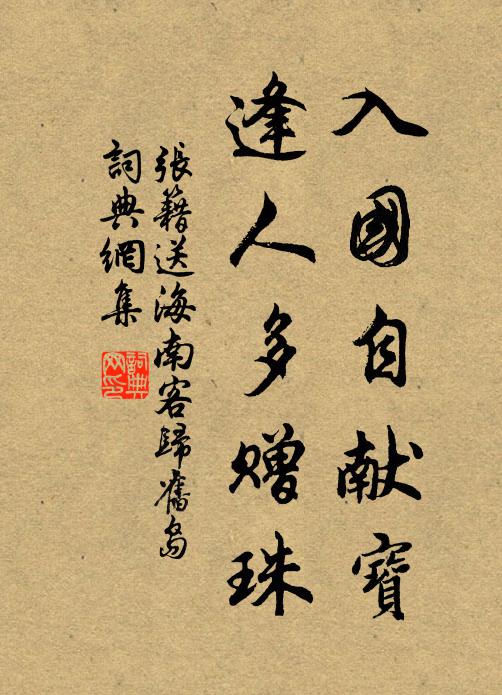 入國自献寶
逢人多赠珠
張籍送海南客歸舊島
詞典網集
詞典网印